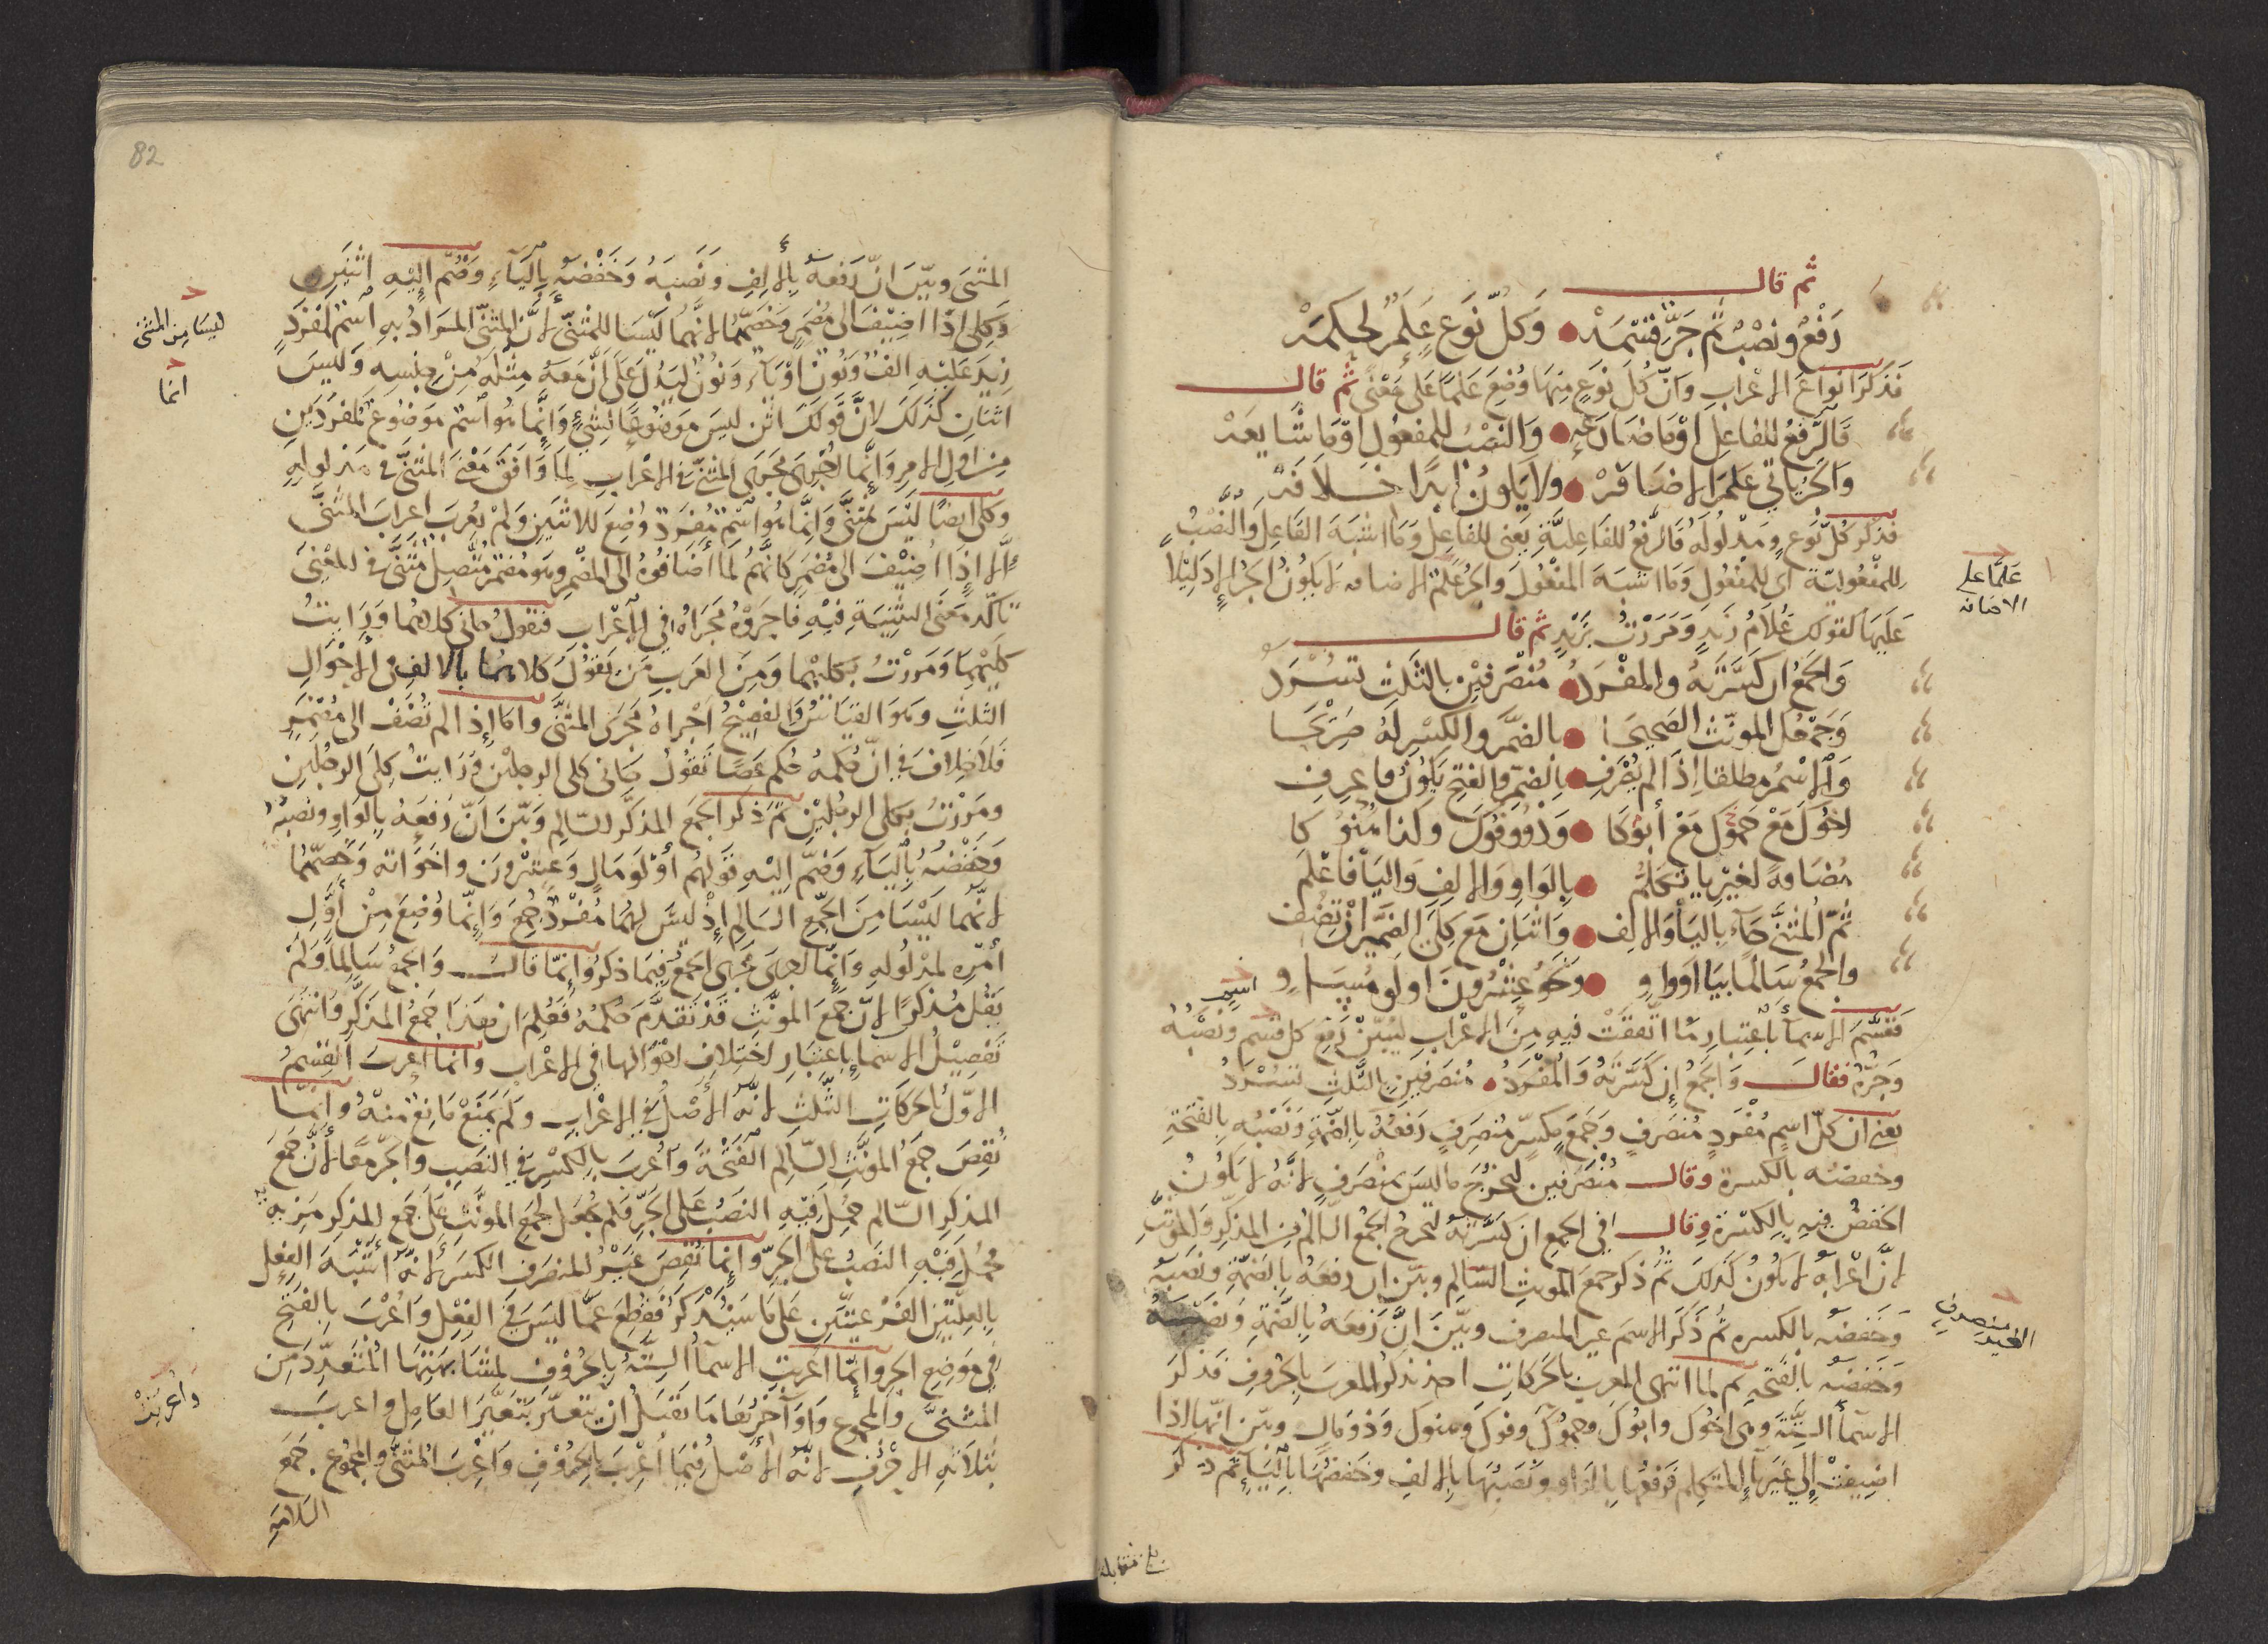 ثم قال
رَفْعٌ ونَصْبٌ ثم جَرٌّ قِسْمَهْ وَكلُّ نَوعٍ عَلَمٌ لحكمَهْ
فَذَكَرَ انواعَ الاعْرابِ وَانّ كُلَّ نوَعٍ مِنها وُضِعَ عَلمًا عَلى مَعْنًى ثُم قال
فَالرَّفعُ للفاعِل اوْ مَا ضارَعَهْ وَالنَصْبُ للمفعُولِ اوْ مَا شايعَهْ
وَالجَرّ ياتي عَلَمَ الاضافهْ ولا يَكونُ ابدًا خلافَهْ
فذكر كُلّ نَوعٍ ومَدْلُولَهُ فالرفْعُ للفاعِليَّةِ يَعني للفاعِل وَمَا اشبَهَ الفَاعِلَ والنّصْبُ
لِلمفعُوليّة اى للمفعُولِ وَمَا اشبَهَ المفْعُولَ والجر عَلَمُ الاضافه لا يكونُ الجرّ الا دَليلا
عَلَيهَا كقولك غُلامُ زَيدٍ وَمَرَرْتُ بزَيْدٍ ثم قال
وَالجَمعُ ان كسَّرتَهُ والمفْرَدُ مُنْصَرِفَيْنِ بالثَّلثِ تسْرَدُ
وَجَمْعُك المونّث الصَحيحَا بالضمّ والكسْرِ لَهُ صَريحَا
وَالاسْمُ مطلقا اِذَا لم يُصْرَفِ بالضمّ والفتحِ يَكونُ فاعرِفِ
اخُوكَ مَعْ حَمُوكَ مَعْ أبُوكا وَذُو وفُوكَ وكذا هَنُوكَا
مُضَافةً لغيْرِ يا تكلّمُ بالوَاوِ وَالالفِ وَاليَا فاعْلَمِ
ثُمّ المُثَنَّى جَآءَ باليَا وَالالف وَاثنانِ مَع كِلَى الضميرَ ان تُضِف
والجمعُ سَالمًا بيَا اوَواوِ وَنحوُ عِشْرُونَ اولو مُسَاوِ
فقَسَّمَ الاسمآء باعْتِبارِ مَا اتّفقَتْ فيهِ مِنَ الاعْرابِ ليُبيّنْ رَفعَ كل قسمٍ ونصْبَهُ
وَجرّهُ فقالَ وَالجمعُ إن كَسَّرتَهُ وَالمُفرَدُ مُنصَرِفَينِ بالثَّلثِ تُسْرَدُ
يَعني ان كلّ اسمٍ مُفْرَدٍ مُنصَرفٍ وَجَمعٍ مُكسّرٍ مُنصَرِفٍ رَفعُهُ بِالضّمةِ وَنَصْبُهِ بالفَتحَةِ
وخفضُه بالكسرة وقال مُنْصَرفين ليخرُجَ ما ليسَ بمنْصَرفٍ لانَّهُ لا يَكونُ
الخفضُ فيهِ بالكسْرَةِ وقال في الجمعِ ان كسَّرْتَهُ ليخرجُ الجمعُ السّالمُ مِنَ المذكّرِ والمؤنّثِ
لانَّ اعْرابَهُ لا يكُونُ كَذلكَ ثُمّ ذكر جمعَ المونثِ السّالمِ وبيّن ان رفعَهُ بالضمّةِ ونصْبَه
وَخَفضَه بالكسره ثمّ ذَكَرَ الاسمَ غير المنصرفِ وبَيّنَ انَّ رَفعَهُ بالضّمّةِ وَنصْبَهُ
وَخَفضَه بالفَتحَهِ ثم لما انتهى المعرب بالحَركاتِ اخذ يذكُرُ المعربَ بالحُروفِ فذكرَ
الاسمآءَ السّتّةَ وهى اخُوك وابُوك وحمُوك وفوك وهنوك وَذو مَال وبيّن انّها اذا
اضِيفَتْ إلى غَير يآء المتكلم فرفعُها بالوَاوِ ونَصَبُهَا بالالفِ وخَفضُهَا باليَآءِ ثم ذكر
عَلَمًا على
الاضافه
الغير منصرف
بلغ مقابله
المثنى وبيّنَ انّ رَفعهُ بالالِفِ وَنَصبَهُ وَخَفْضَهُ بِاليَآءِ وَضَمّ اِليْهِ اثنَينِ
وَكِلى اذَا اضِيفَ الى مُضمَرٍ وَخصّهُما لانهُمَا لَيْسَا للمثنّى لانَّ المثنّى المرادُ بهِ اسْمٌ مُفرَدٌ
زِيدَ عَليْهِ الفٌ وَنونٌ اوْ يَآء وَنُونٌ ليَدُلّ عَلى انَّ مَعَهُ مِثلَهُ مِنْ جِنسِه وَلَيسَ
اثنَانِ كَذلكَ لانَّ قَولكَ اثن ليسَ مَوضُوعًا لِشيءٍ وَاِنَّما هُوَ اسْمٌ موَضُوعٌ لمفْرَدَينِ
مِن اولِ الامرِ وَانَّما اجْرى مَجرَى المثَنَّى فى الاعْرابِ لمَا وَافقَ مَعْنى المثنَّى في مَدلولهِ
وكلى ايضًا لَيسَ بمثَنًّى وَانِّمَا هُوَ اسْمٌ مُفرَدٌ وُضِعَ للاثنَينِ وَلَمْ يُعرَبَ اعرابَ المثنَّى
إلا اذَا اُضِيْفَ الى مُضْمَرٍ كانّهُم لَمَا أضَافُوهُ الى المُضْمَرِ وهو مُضمَرٌ مُتّصِلٌ مُثَنًّى في المعْنى
تاكّدَ مَعنَى التثْنِيَةِ فيْهِ فاجرَوْهُ مَجرَاهُ في الاعْرابِ فتقولُ جاني كلاهُما وَرَايتُ
كليْهِمَا وَمَررْتُ بكليهِما ومِنَ العَربِ مَن يَقُولُ كلاهُمَا بالالفِ في الاحْوَالِ
الثلثِ وَهوَ القيَاسُ وَالفصِيحُ اجْراهُ مَجرَى المثنَّى وامّا إذا لم تُضَفْ الى مُضْمَرٍ
فلا خِلافَ في انّ حُكمَهُ حُكم عَصًا تقُولُ جاني كلى الرجلَيْن وَرَايتُ كِلَى الرجُلينِ
ومَررتُ بكلى الرجُلَيْنِ ثم ذكر الجَمعَ المذكَّر السّالِمِ وبَيّنَ انّ رَفعَهُ بالوَاوِ ونصبَهُ
وَخَفْضَهُ باليَآءِ وَضَمّ اليْهِ قَولهُم أُوْلَو مَالٍ وَعِشْرونَ واخَوَاتهِ وَخصّهُمَا
لانّهُمَا لَيْسَا مِنَ الجمعِ السَالِمِ إذْ لَيسَ لَهُمَا مُفْرَدٌ جُمِعَ وَإنّما وُضِعَ مِنْ أوَّلِ
أمْرِه لمدلُولهِ وَإنّما يجري مَجرى الجمعُ فيمَا ذكرُ وَإنّما قال وَالجمعُ سَالِمًا وَلَمْ
يَقُل مُذكرًا لانّ جَمعَ المؤنَّثِ قَدْ تقَدَّمَ حُكمُهُ فَعُلِمَ ان هَذا جَمعُ المذَكَّرِ وَانتَهَى
تَفصِيْلُ الاسمَآءِ باعتِبَارِ اختلافِ احْوَالِهَا في الاعْرابِ وَانمَا اعربَ القِسْمُ
الاوّلُ بالحَركاتِ الثَّلثِ لانَّهُ الاصْلُ في الاعْرابِ ولَم يَمنَعْ مَانِعٌ مِنْهُ وَإنّمَا
نُقِصَ جَمعُ المؤنَّثِ السَّالِمِ الفَتْحَةَ وَأُعْربَ بِالكسْرِ في النَصَبِ والجَرّ مَعًا لانَّ جَمعَ
المذكرِ السّالم حُمِلَ فيهِ النَصْبُ عَلى الجَرّ فلَم يُجعَل لجَمعِ المؤنَّثِ عَلَى جَمع المذكرِ مَزِيهٌ
فحُمِلَ فيهِ النصبُ على الجرّ وإنّما نُقِصَ غَيْرُ المنصَرفِ الكسَرَ لانّهُ أشبَهَ الفِعْل
بِالعِلّتيْنِ الفَرْعيّتَينِ عَلى مَا سَيُذكرُ فقُطِعَ عَمّا ليسَ في الفِعْل وَاُعْرَبَ بِالفتحِ
في موَضِعِ الجرِ وإنّما اعرِبتِ الاسمآءُ السِّتّةُ بالحُرُوْفِ لمشابهَتِهَا المتعَدّدَ مِن
المثنىَّ والمجموعِ وَاواخِرُهَا مَا تقبَلُ ان تتغيَّر بتَغيُّرِ العَامِل واعرب
بثلاثَةِ احرُفٍ لانّهُ الاصْلُ فيمَا اُعْرِبَ بالحُرُوْفِ وَاُعْرِبَ المُثنَّى والمجمُوعِ جَمعَ
السّلامَهِ
ليسَا مِن المثنى
انما
واعربت
82